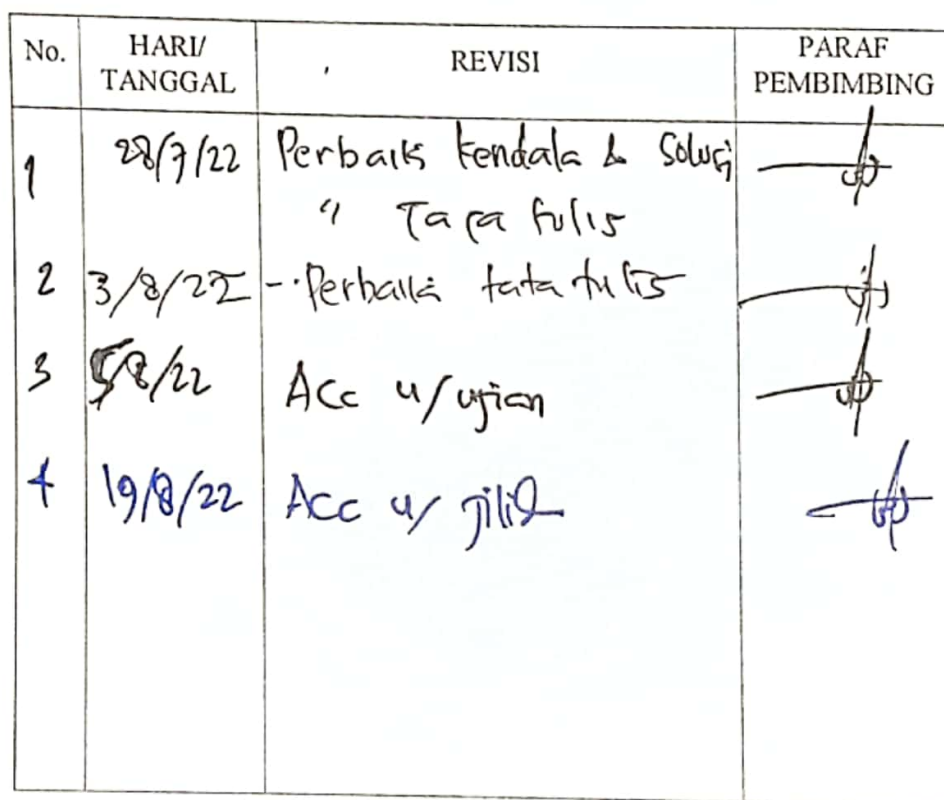 No. HARI/ TANGGAL REVISI PARAF PEMBIMBING
1 28/7/22 Perbaiki kendala & Solusi
" Tata tulis
2 3/8/22 - Perbaiki tata tulis
3 5/8/22 Acc u/ ujian
4 19/8/22 Acc u/ jilid